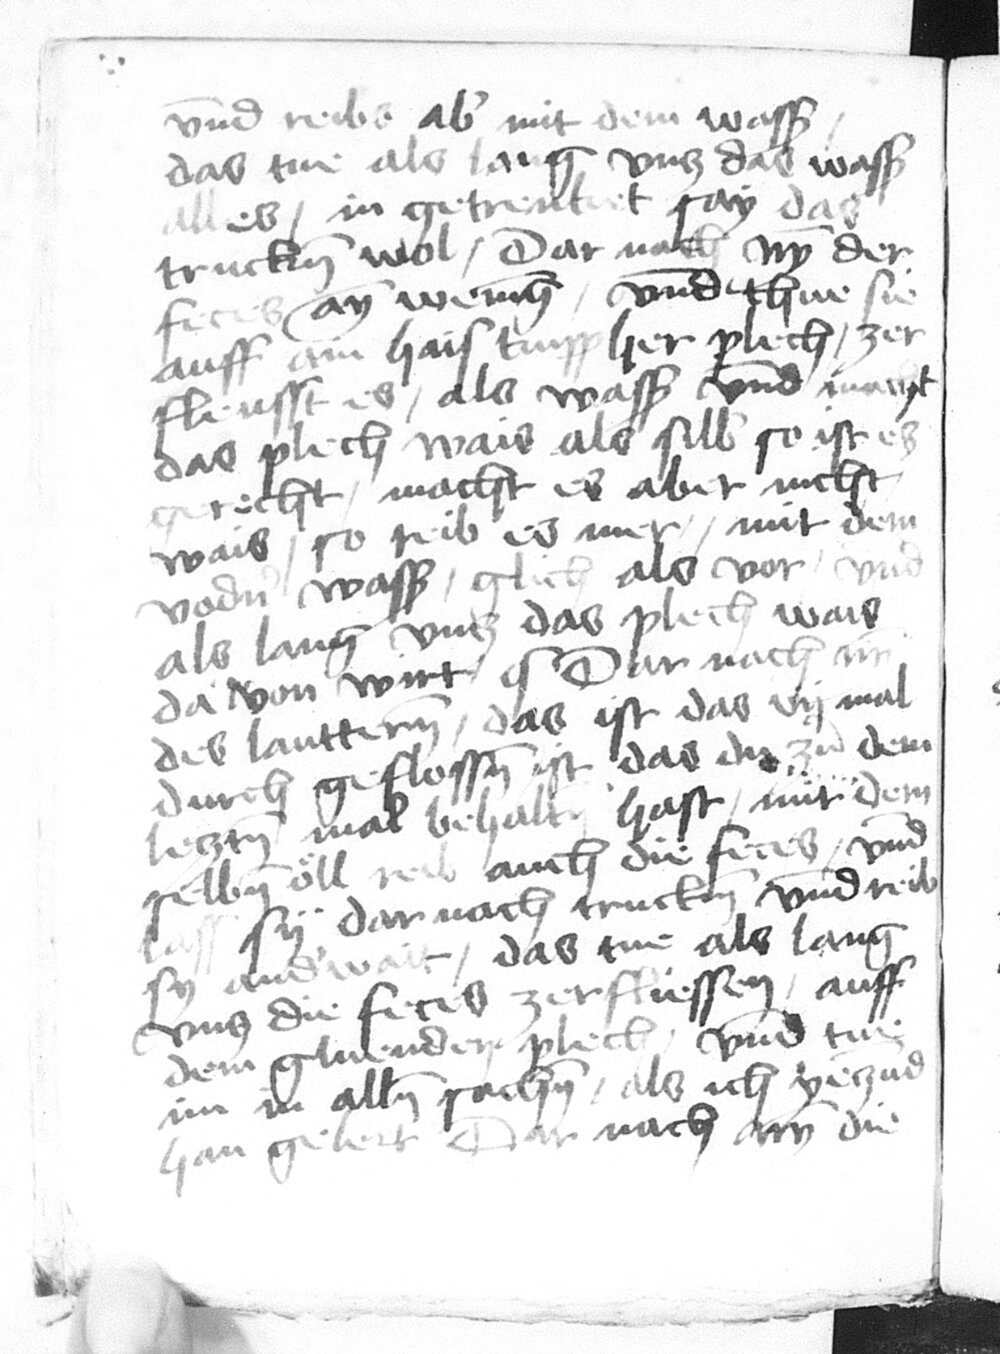 vnd reibs ab mit dem wass
das tue als lang vntz das wass
alles / in getrenket say das
truckn̄ wol / Dar nach nym̄ der
feces ain wenig / vnd thue sie
auff ain hais kupffher plech / zer
fleusst es / als wass vnd macht
das plech wais als silb so ist es
gerecht / macht es aber nicht
wais / so reib es mer / mit dem
vodn̄ wass / glich als vor / vnd
als lang vntz das plech wais
da von wirt / Dar nach nim
des lauttern̄ / das ist das vij mal
durch geflossn̄ ist das du zu dem
lecztn̄ mal behaltn̄ hast / mit dem
selbn̄ öll reib auch die feces / vnd
lass sy dar nach truckn̄ vnd reib
sy andwait / das tue als lang
vntz die feces zerfliessen / auff
dem gluenden plech / vnd tue
im in alln̄ sachn̄ / als ich yeczud
han gelert Dar nach nym die